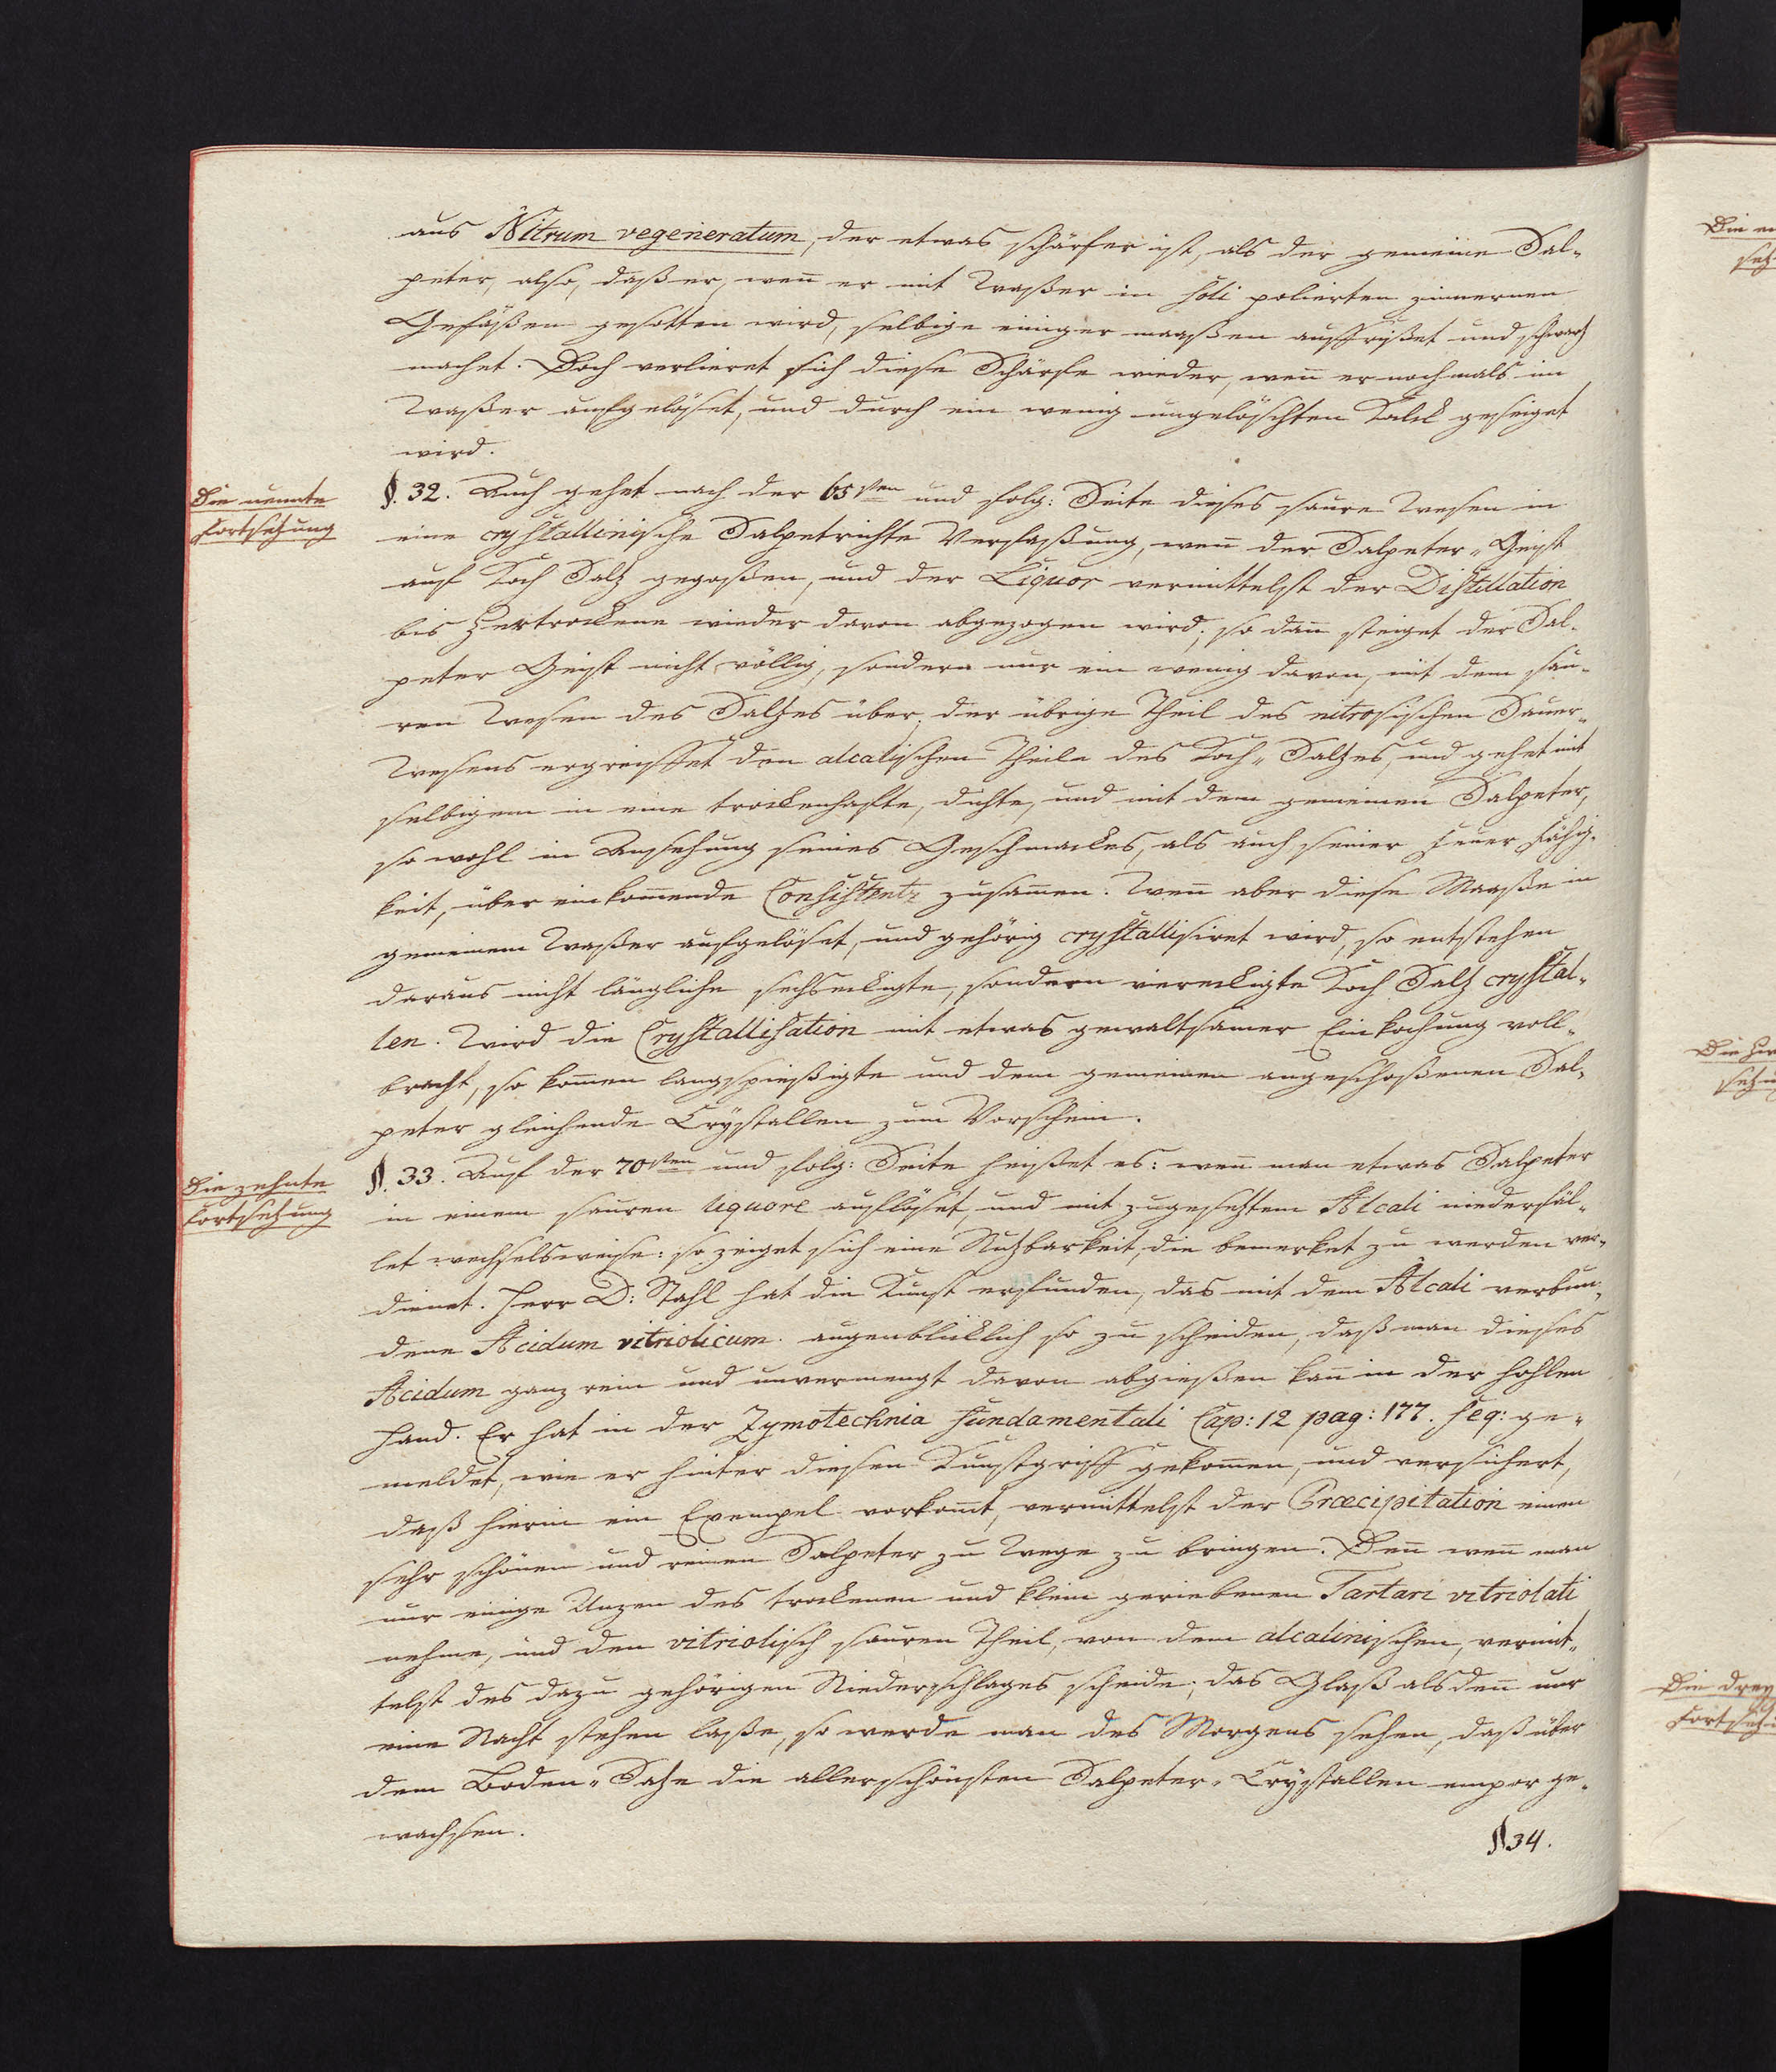 aus Nitrum regeneratum, der etwas schärfer ist, als der gemeine Sal-
peter, also, daß er, wen̄ er mit Waßer in holi polierten zinnernen
Gefäßen gesotten wird, selbige einiger maaßen ausfrißet und schwarz
machet. Doch verlieret sich diese Schärfe wieder, wen̄ er nochmals im
Waßer aufgelöset, und durch ein wenig ungelöschten Kalck geseiget
wird.
Die neunte
Fortsetzung
§. 32. Auch gehet nach der 65sten und folg: Seite dieses saure Wesen in
eine crystallinische Salpetrichte Verfaßung, wen̄ der Salpeter-Geist
auf Koch Saltz gegoßen, und der Liquor vermittelst der Distillation
bis Zertrockene wieder davon abgezogen wird; so dan̄ steiget der Sal-
peter Geist nicht völlig, sondern nur ein wenig davon, mit dem sau-
ren Wesen des Saltzes über, der übrige Theil des nitrosischen Sauer-
Wesens ergreiffet den alcalischen Theile des Koch-Saltzes, und gehet mit
selbigem in eine trockenhafte, dichte, und mit dem gemeinen Salpeter,
so wohl in Ansehung seines Geschmackes, als auch seiner Feuer Fähig-
keit, über ein kom̄ende Consistentz zusam̄en. Wen̄ aber diese Maaße in
gemeinem Waßer aufgelöset, und gehörig crystallisiret wird, so entstehen
daraus nicht längliche sechseckigte, sondern viereckigte Koch Saltz crystal-
len. Wird die Crystallisation mit etwas gewaltsamer Einkochung voll-
bracht, so kom̄en langspießigte und dem gemeinen angeschoßenen Sal-
peter gleichende Crystallen zum Vorschein.
Die zehnte
Fortsetzung
§. 33. Auf der 70sten und folg: Seite heißet es: wen̄ man etwas Salpeter
in einem sauren liquore auflöset, und mit zugesetztem Alcali niederfäl-
let wechselsweise: so zeiget sich eine Nutzbarkeit, die bemerket zu werden ver-
dienet. Herr D: Stahl hat die Kunst erfunden, das mit dem Alcali verbun-
dene Acidum vitriolicum augenblicklich so zu scheiden, daß man dieses
Acidum ganz rein und unvermengt davon abgießen kan̄ in der hohlen
Hand. Er hat in der Zymotechnia fundamentali Cap: 12 pag: 177. seq: ge-
meldet, wie er hinter diesen Kunstgriff gekom̄en, und versichert,
daß hierin ein Exempel vorkom̄t, vermittelst der Præcipitation einen
sehr schönen und reinen Salpeter zu Wege zu bringen. Den̄ wen̄ man
nur einige Unzen des trockenen und klein geriebenen Tartari vitriolati
nehme, und den vitriolisch sauren Theil, von dem alcalinischen, vermit-
telst des dazu gehörigen Niederschlages scheide; das Glaß alsden̄ nur
eine Nacht stehen laße, so werde man des Morgens sehen, daß über
dem Boden-Satze die allerschönsten Salpeter-Crystallen empor ge-
wachsen.
§ 34.